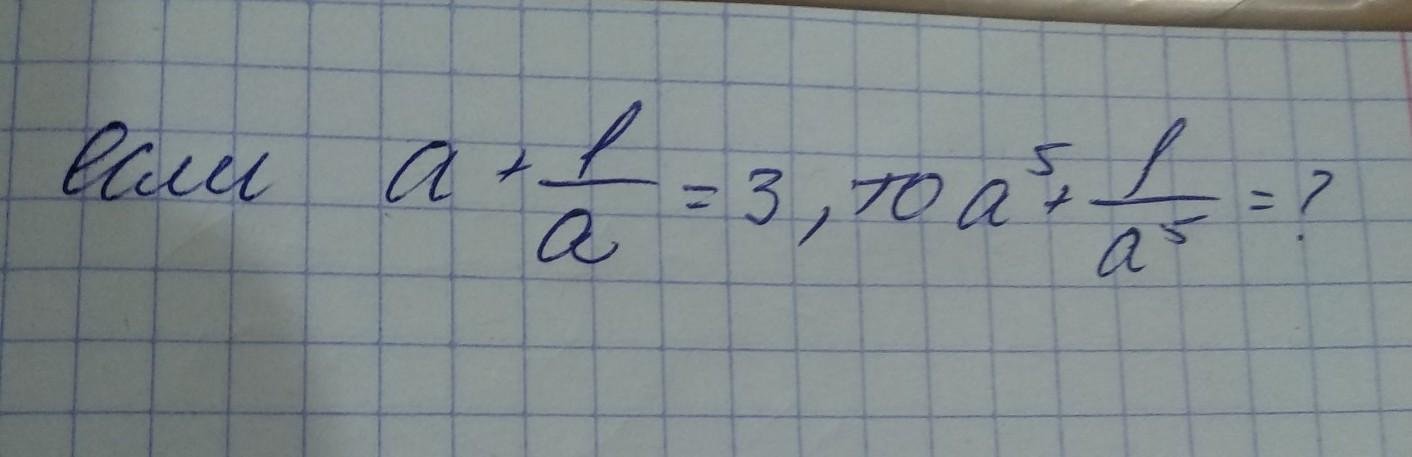 если a + 1/a = 3, то a⁵ + 1/a⁵ = ?